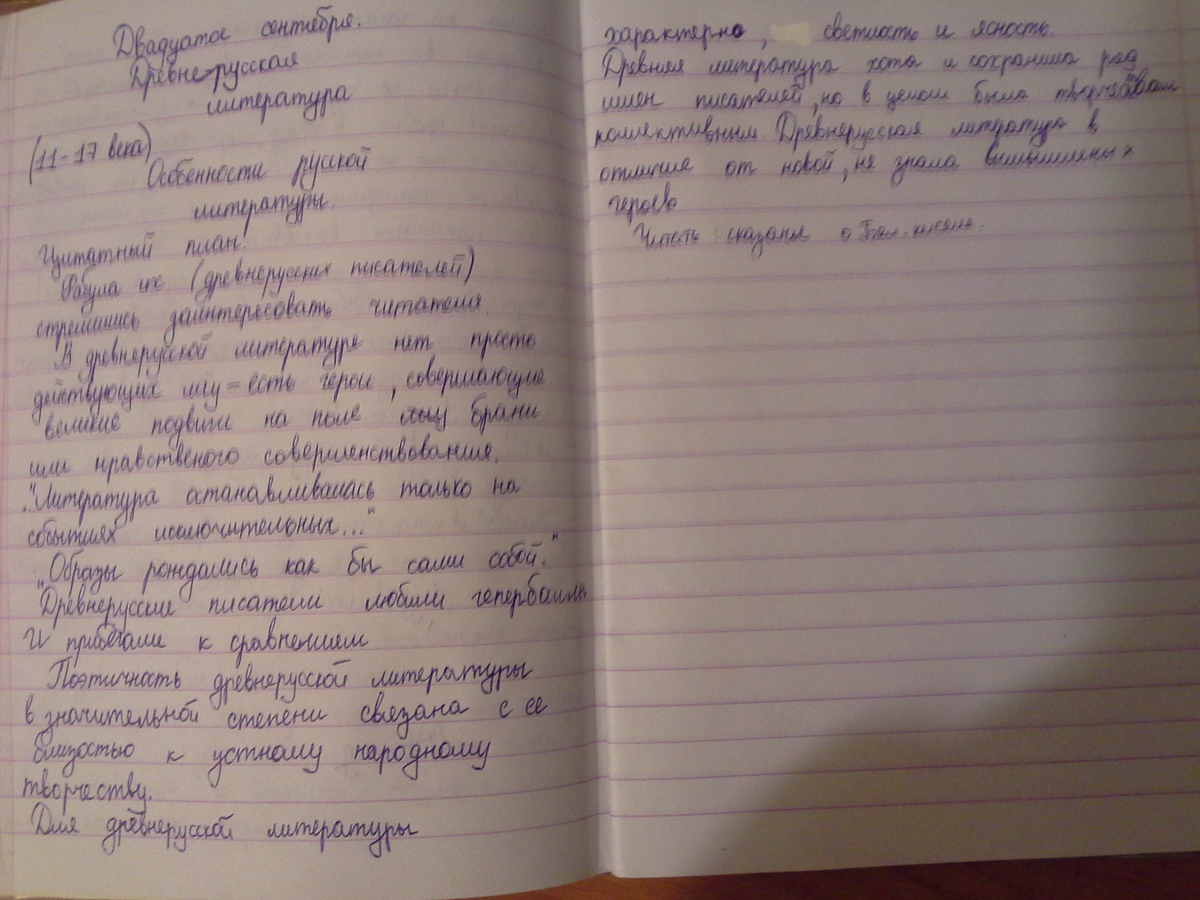 Двадцатое сентября.
Древнерусская
литература
(11-17 века)
Особенности русской
литературы.
Цитатный план.
Фабула их (древнерусских писателей)
стремились заинтересовать читателя.
В древнерусской литературе нет просто
действующих лиц = есть герои, совершающие
великие подвиги на поле брани
или нравственого совершенствования.
"Литература останавливалась только на
событиях исключительных..."
"Образы рождались как бы сами собой."
Древнерусские писатели любили гепербаллы
И прибегали к сравнением
Поэтичность древнерусской литературы
в значительной степени связана с ее
близостью к устному народному
творчеству.
Для древнерусской литературы
характерно, светлость и ясность.
Древняя литература хотя и сохранила ряд
имен писателей, но в целом была творчеством
коллективным. Древнерусская литература в
отличие от новой, не знала вымышлены х
героев
Читать: сказанье о